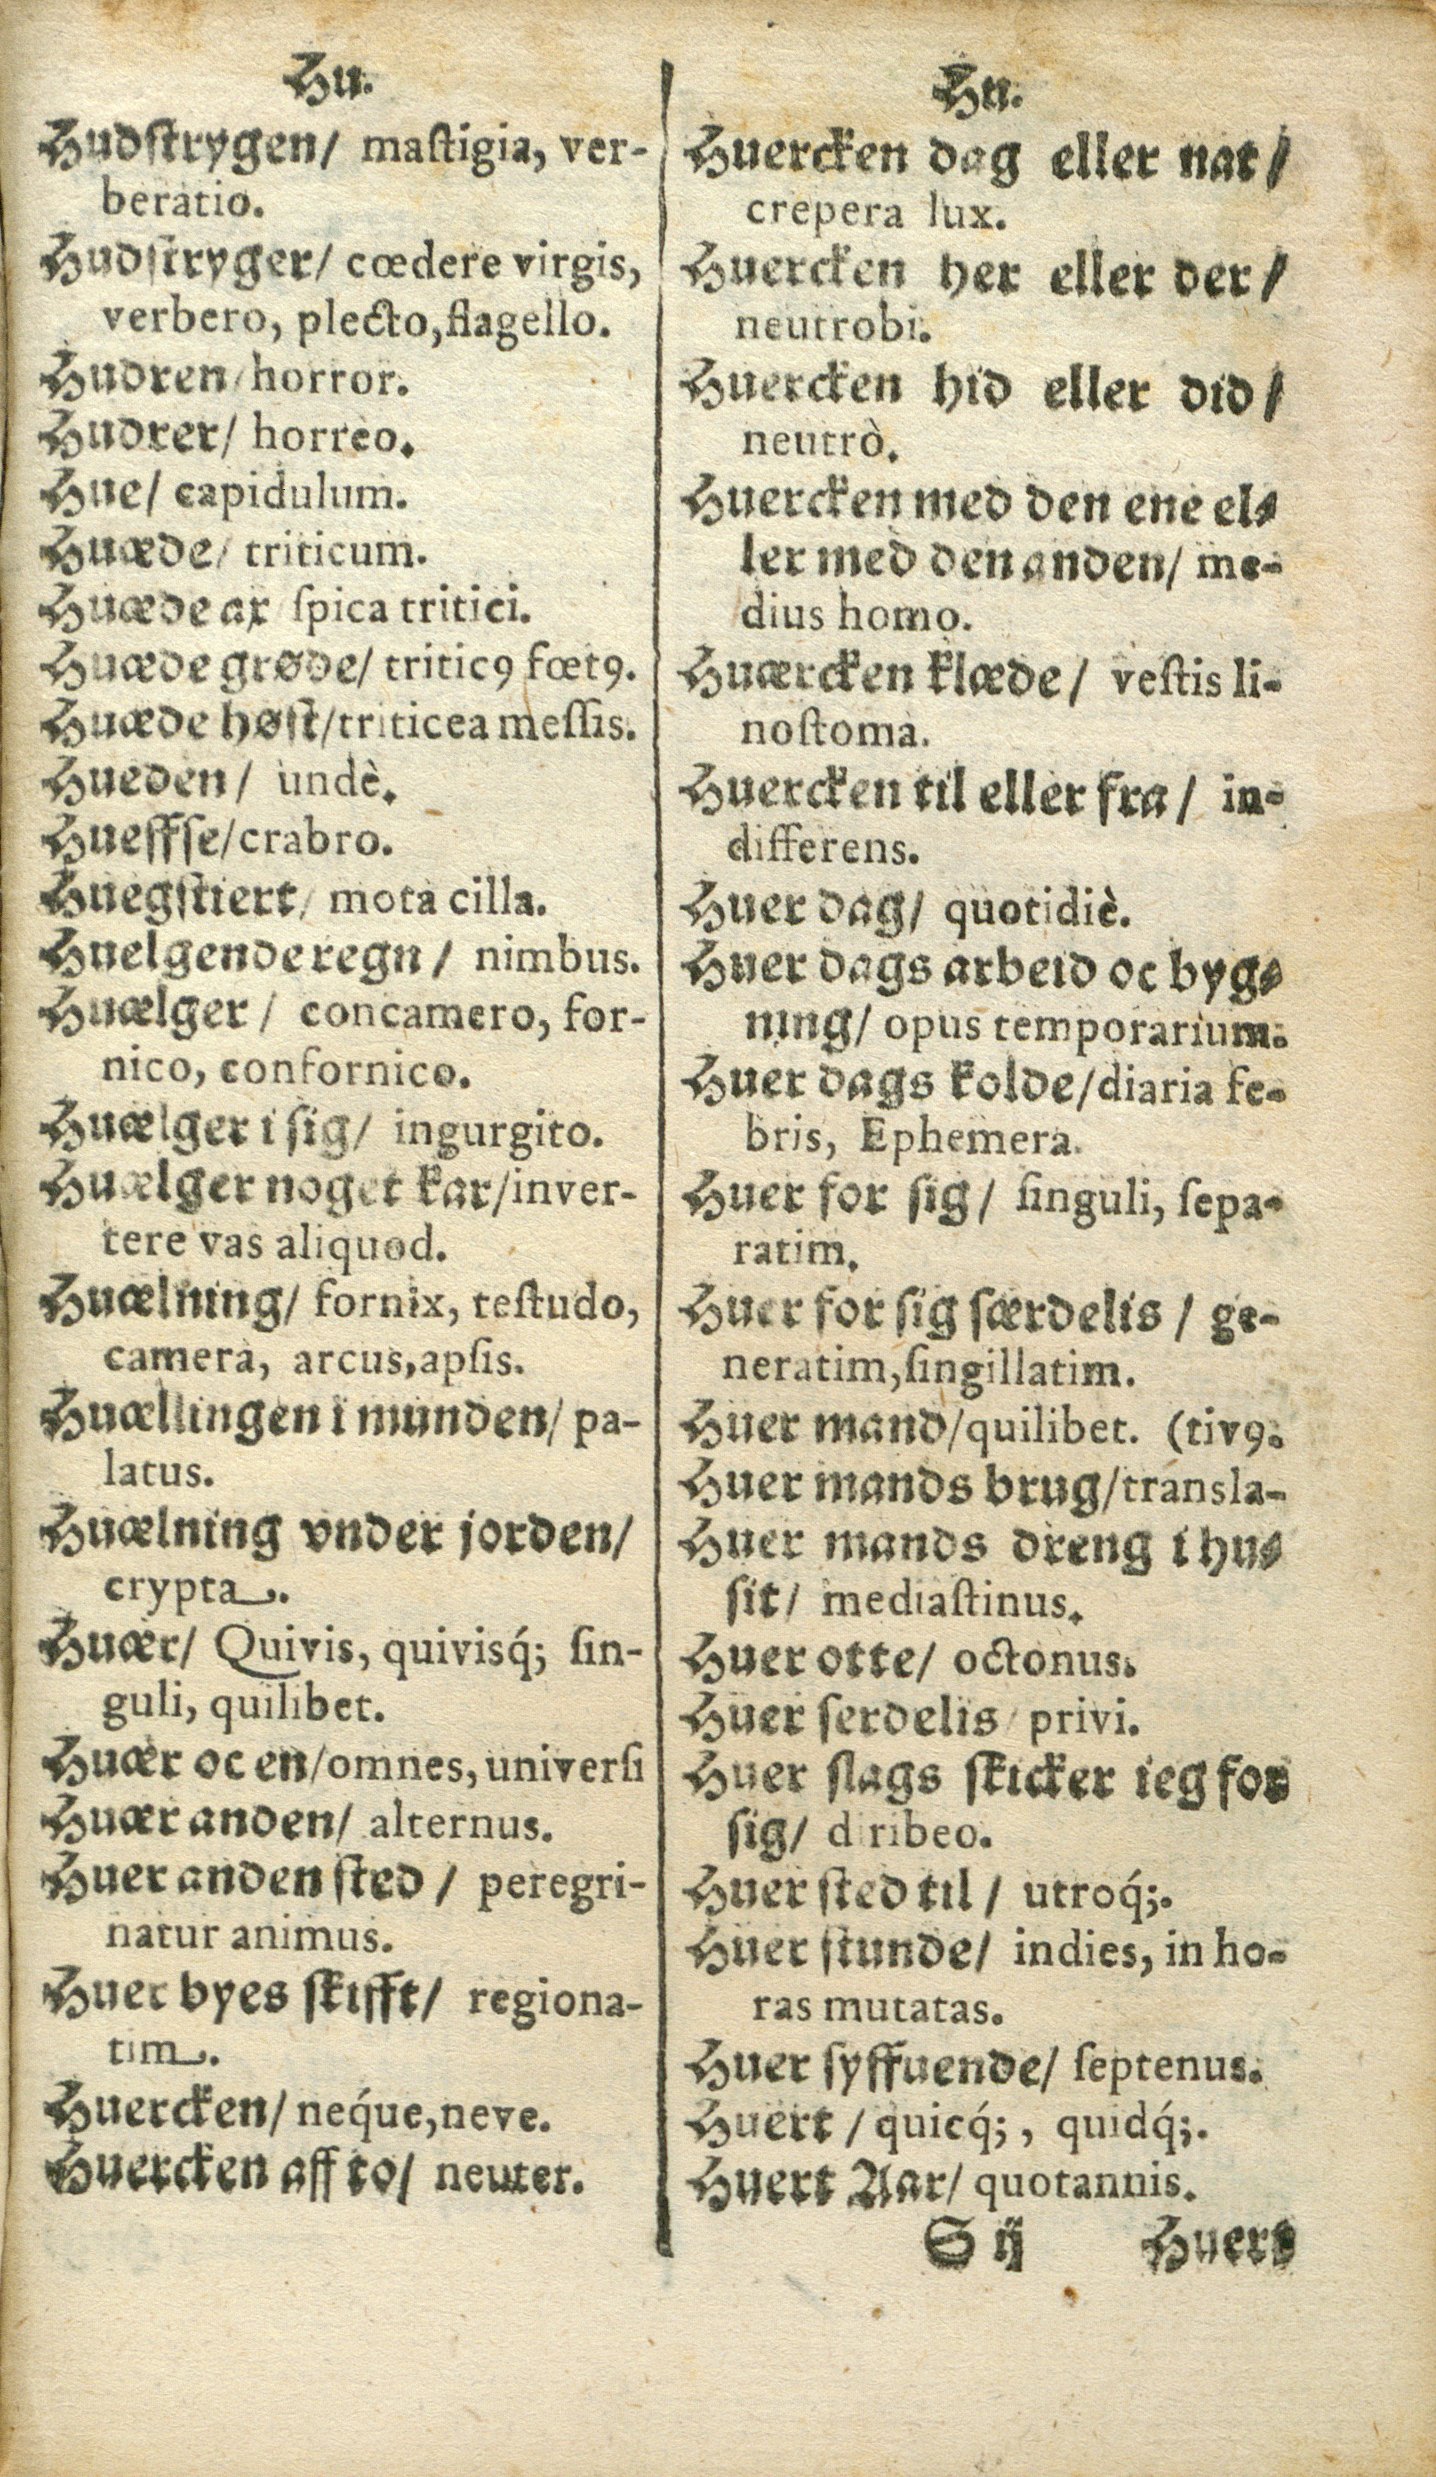 Hu.
Hudſtrygen/ maſtigia, ver-
beratio.
Hudſtryger/ cœdere virgis,
verbero, plecto, flagello.
Hudren/ horror.
Hudrer/ horreo.
Hue/ capidulum.
Huæde/ triticum.
Huæde ax/ ſpica tritici.
Huæde grøde/ triticꝯ fœtꝯ.
Huæde høſt/ triticea meſſis.
Hueden/ undè.
Hueffſe/ crabro.
Huegſtiert/ mota cilla.
Huelgende regn/ nimbus.
Huælger/ concamero, for-
nico, confornico.
Huælger i ſig/ ingurgito.
Huælger noget kar/ inver-
tere vas aliquod.
Huælning/ fornix, teſtudo,
camera, arcus, apſis.
Huællingen i munden/ pa-
latus.
Huælning vnder jorden/
crypta.
Huær/ Quivis, quivisq́; ſin-
guli, quilibet.
Huær oc en/ omnes, univerſi
Huær anden/ alternus.
Huer anden ſted/ peregri-
natur animus.
Huer byes ſkifft/ regiona-
tim.
Huercken/ neq́ue, neve.
Huercken aff to/ neuter.
Hu.
Huercken dag eller nat/
crepera lux.
Huercken her eller der/
neutrobi.
Huercken hid eller did/
neutrò.
Huercken med den ene el-
ler med den anden/ me-
dius homo.
Huærcken klæde/ veſtis li-
noſtoma.
Huercken til eller fra/ in-
differens.
Huer dag/ quotidiè.
Huer dags arbeid oc byg-
ning/ opus temporarium.
Huer dags kolde/ diaria fe-
bris, Ephemera.
Huer for ſig/ ſinguli, ſepa-
ratim.
Huer for ſig ſærdelis/ ge-
neratim, ſingillatim.
Huer mand/ quilibet. (tivꝯ.
Huer mands brug/ transla-
Huer mands dreng i hu-
ſit/ mediaſtinus.
Huer otte/ octonus.
Huer ſerdelis/ privi.
Huer ſlags ſkicker ieg for
ſig/ diribeo.
Huer ſted til/ utroq́;.
Huer ſtunde/ indies, in ho-
ras mutatas.
Huer ſyffuende/ ſeptenus.
Huert/ quicq́;, quidq́;.
Huert Aar/ quotannis.
S ij Huert